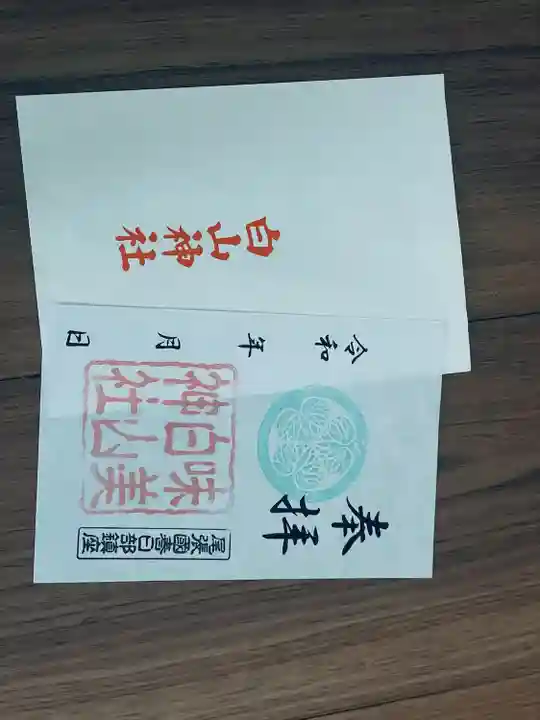 白山神社
奉拝
令和 年 月 日
味美
白山
神社
尾張國春日部鎮座